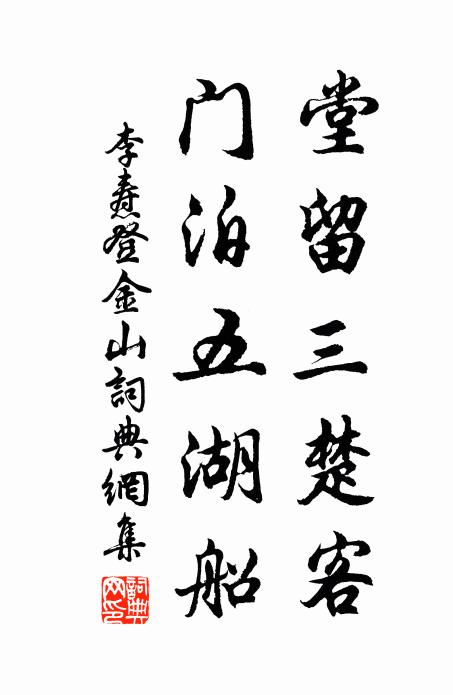 堂留三楚客
门泊五湖船
李焘登金山詞典網集
詞典网印